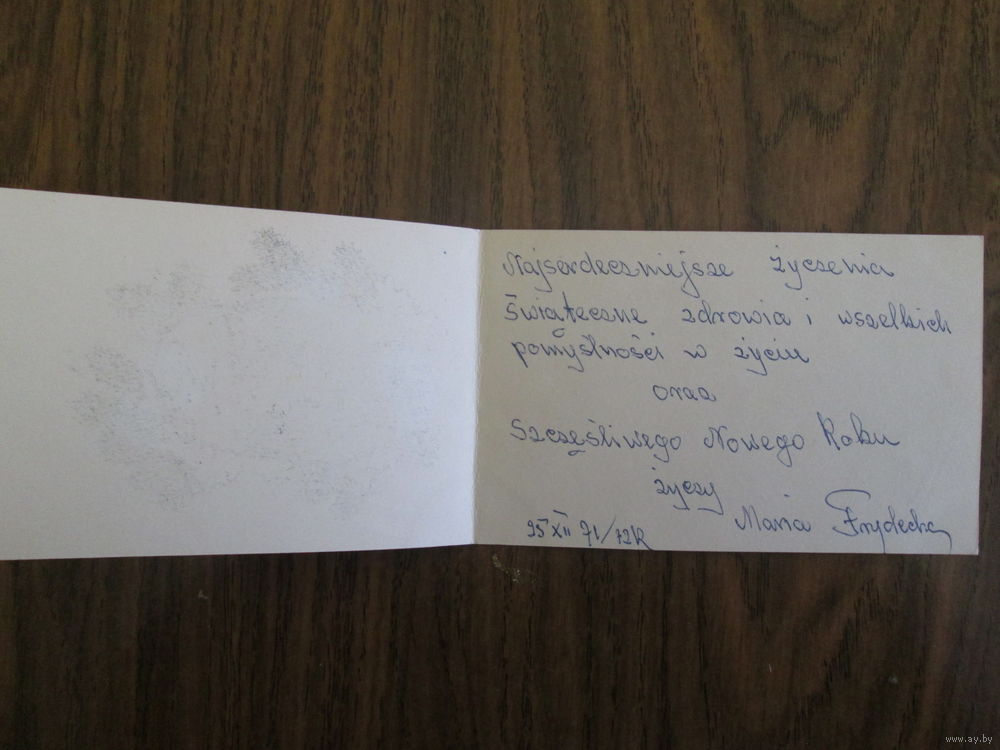 Najserdeczniejsze życzenia
świąteczne zdrowia i wszelkich
pomyślności w życiu
oraz
Szczęśliwego Nowego Roku
życzy
Maria Frydecka
25 XII 71/72R
www.ay.by